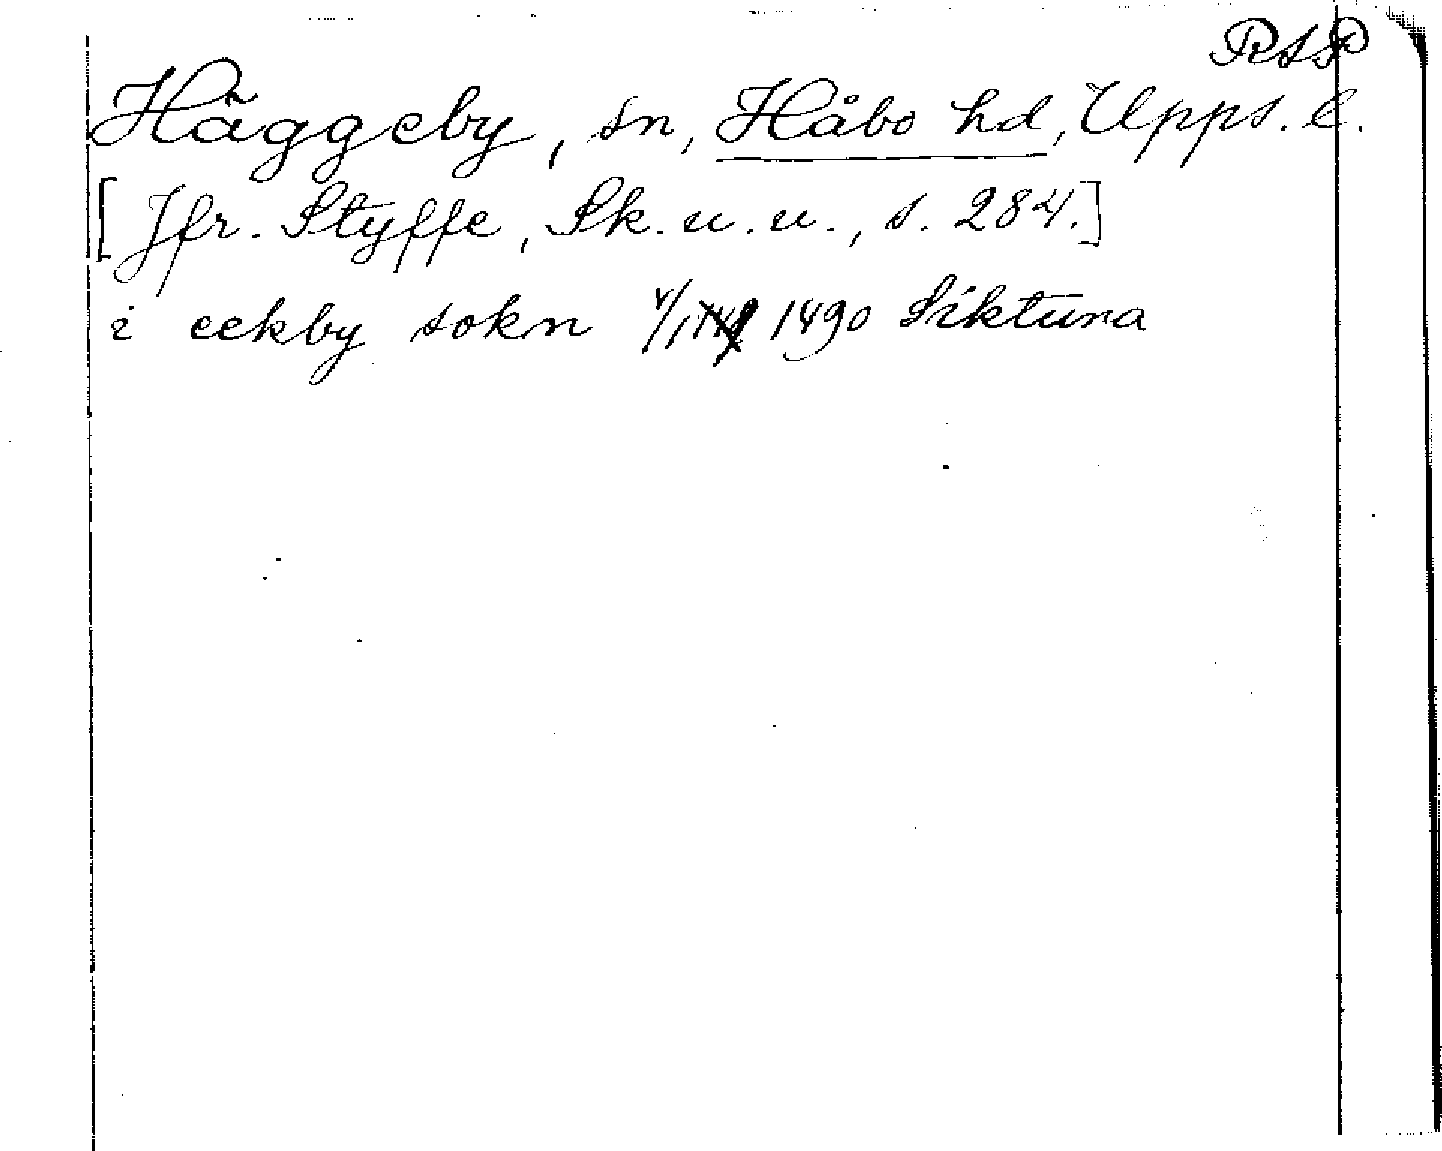 RAP
Häggeby, sn, Håbo hd, Upps. l.
[Jfr. Styffe, Sk. u. u., s. 284.]
i eekby sokn 4/1 1490 Siktuna